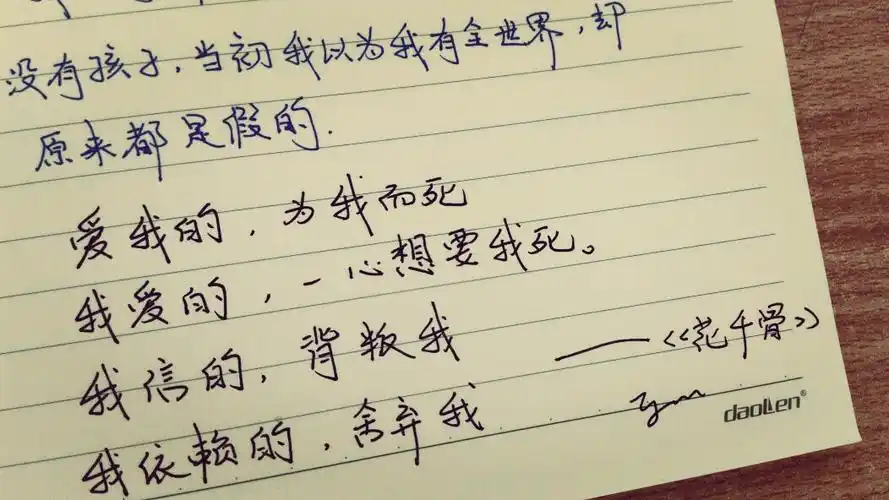 没有孩子，当初我以为我有全世界，却
原来都是假的.
爱我的，为我而死
我爱的，一心想要我死。
我信的，背叛我
——《花千骨》
我依赖的，舍弃我
daollen®